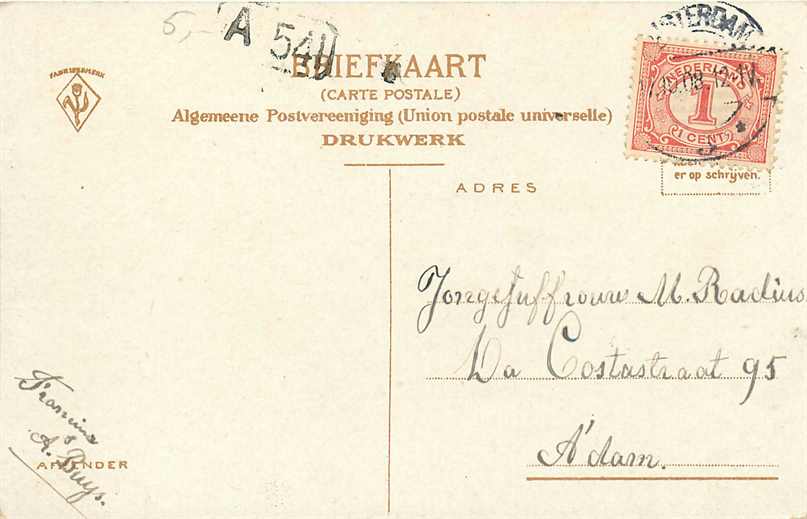 5,-
A 540
BRIEFKAART
(CARTE POSTALE)
Algemeene Postvereeniging (Union postale universelle)
DRUKWERK
FABRIEKSMERK
AMSTERDAM
NEDERLAND
1
1 CENT
er op schrijven.
ADRES
Jongejuffrouw M. Radius
Da Costastraat 95
A'dam.
Francina
A. Buys.
AFZENDER